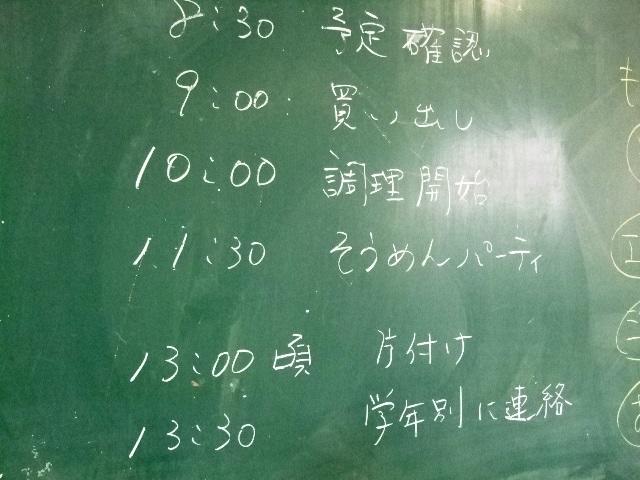 8:30 予定確認
9:00 買い出し
10:00 調理開始
11:30 そうめんパーティ
13:00頃 片付け
13:30 学年別に連絡
も